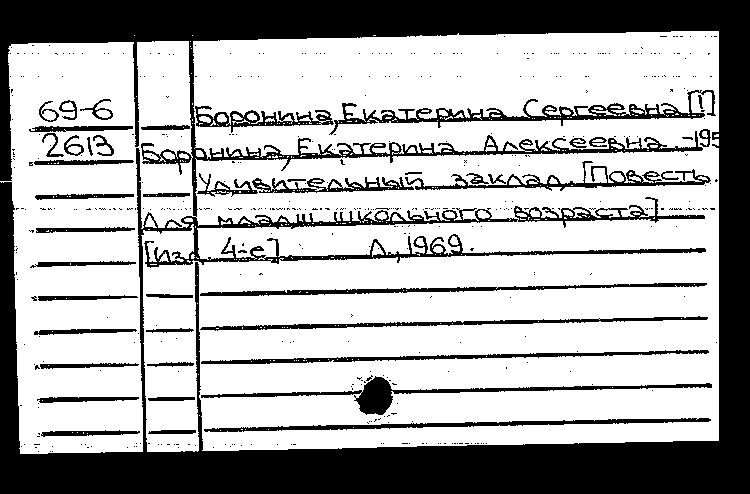 69-6 Боронина, Екатерина Сергеевна [!]
2613 Боронина, Екатерина Алексеевна -195
Удивительный заклад. [Повесть.
Для младш школьного возраста].
[Изд 4-е] Л., 1969.